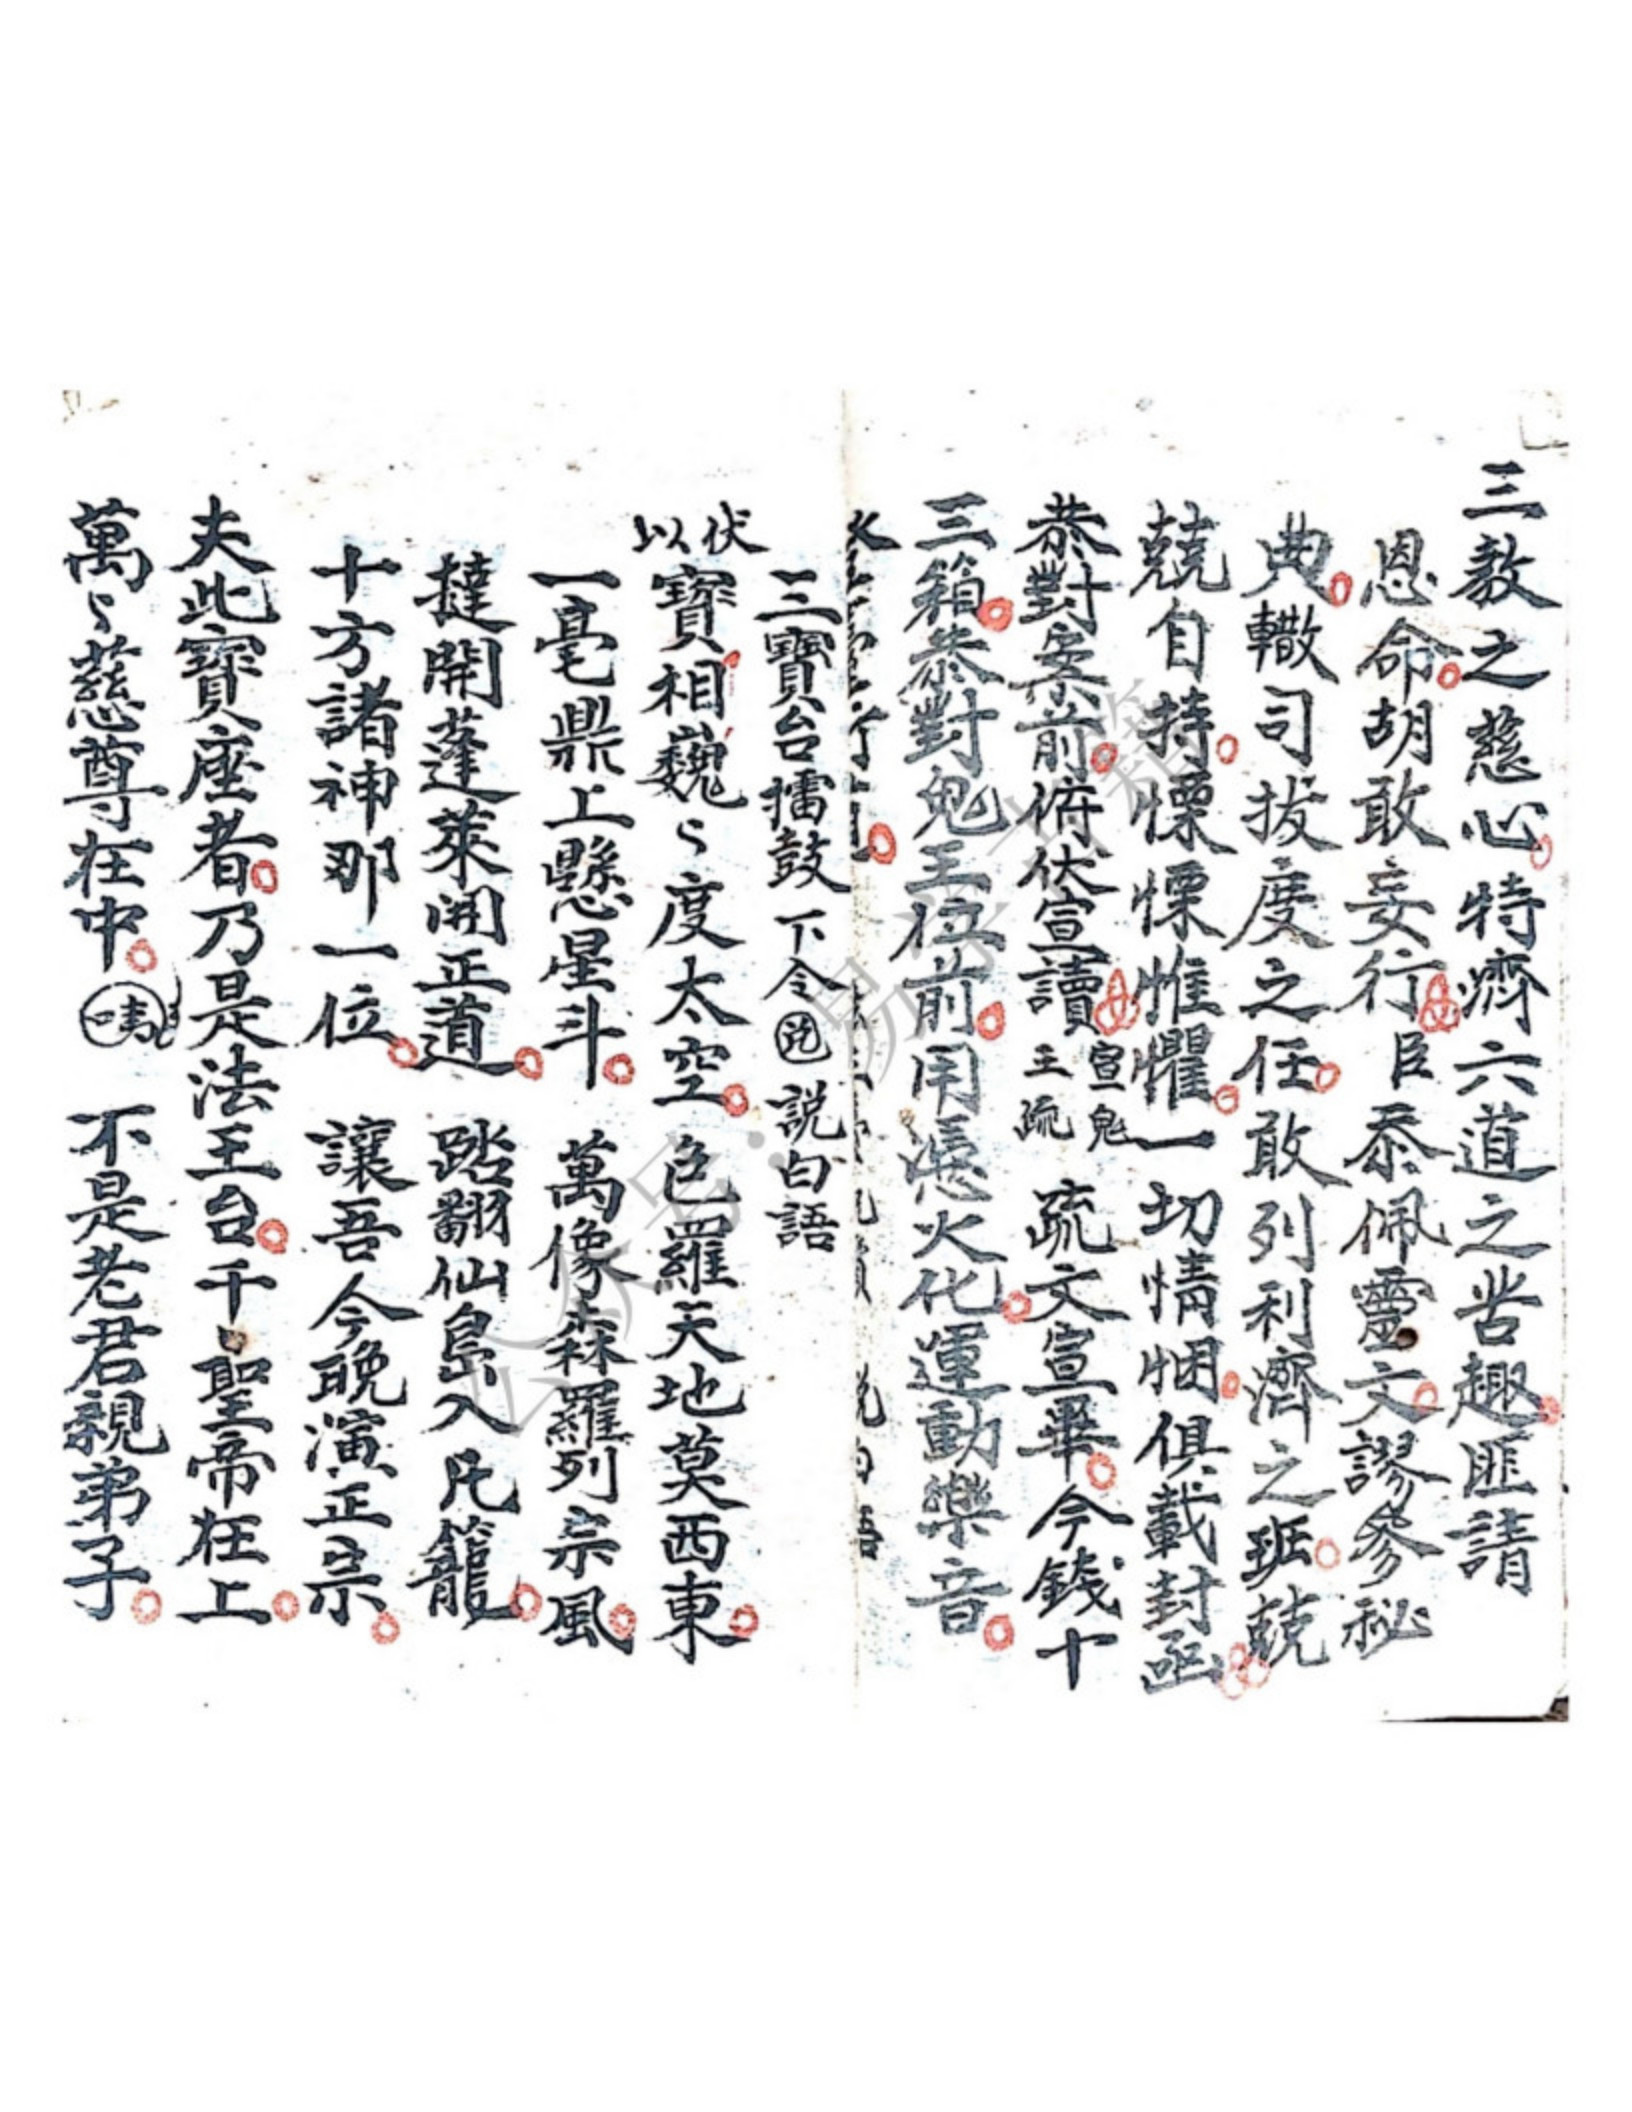 三教之慈心特濟六道之苦趣匪請
恩命胡敢妄行臣忝佩靈文謬參秘
典轍司拔度之任敢列利濟之班兢
兢自持慄慄惟懼一切情悃俱載封函
恭對案前俯伏宣讀 宣鬼王疏 疏文宣畢今錢十
三箱恭對鬼王位前用憑火化運動樂音
三寶台擂鼓下令 說白語
伏以寶相巍々度太空 色羅天地莫西東
一毫鼎上懸星斗 萬像森羅列宗風
撻開蓬萊開正道 踏翻仙島入凡籠
十方諸神那一位 讓吾今晚演正宗
夫此寶座者乃是法王台千聖帝在上
萬々慈尊在中 不是老君親弟子
公众号:易